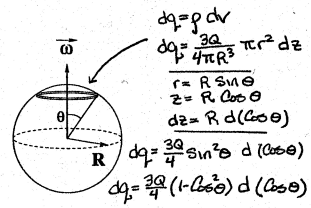 dq = ρ dv
dq = 3Q/4πR³ πr² dz
r = R Sin θ
z = R Cos θ
dz = R d(Cos θ)
dq = 3Q/4 Sin²θ d(Cos θ)
dq = 3Q/4 (1-Cos²θ) d(Cos θ)
ω
θ
R